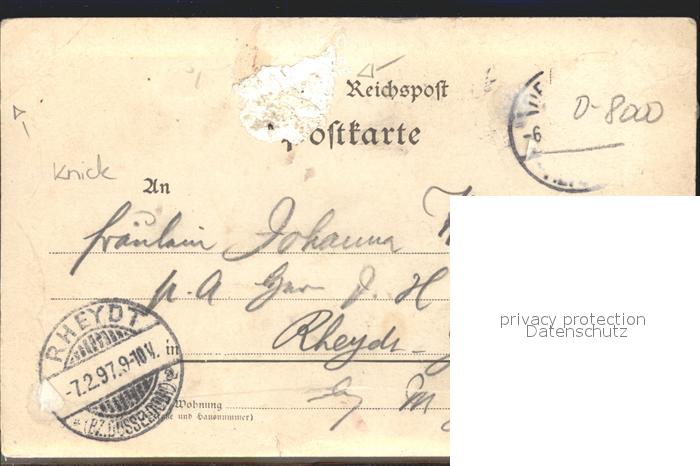 Reichspost
D-8000
Postkarte
-6
Knick
An
Fräulein Johanna
p. A J. H
Rheydt
RHEYDT
-7.2.97.9-10V.
(BZ.DÜSSELDORF)
in
Wohnung
und Hausnummer)
privacy protection
Datenschutz